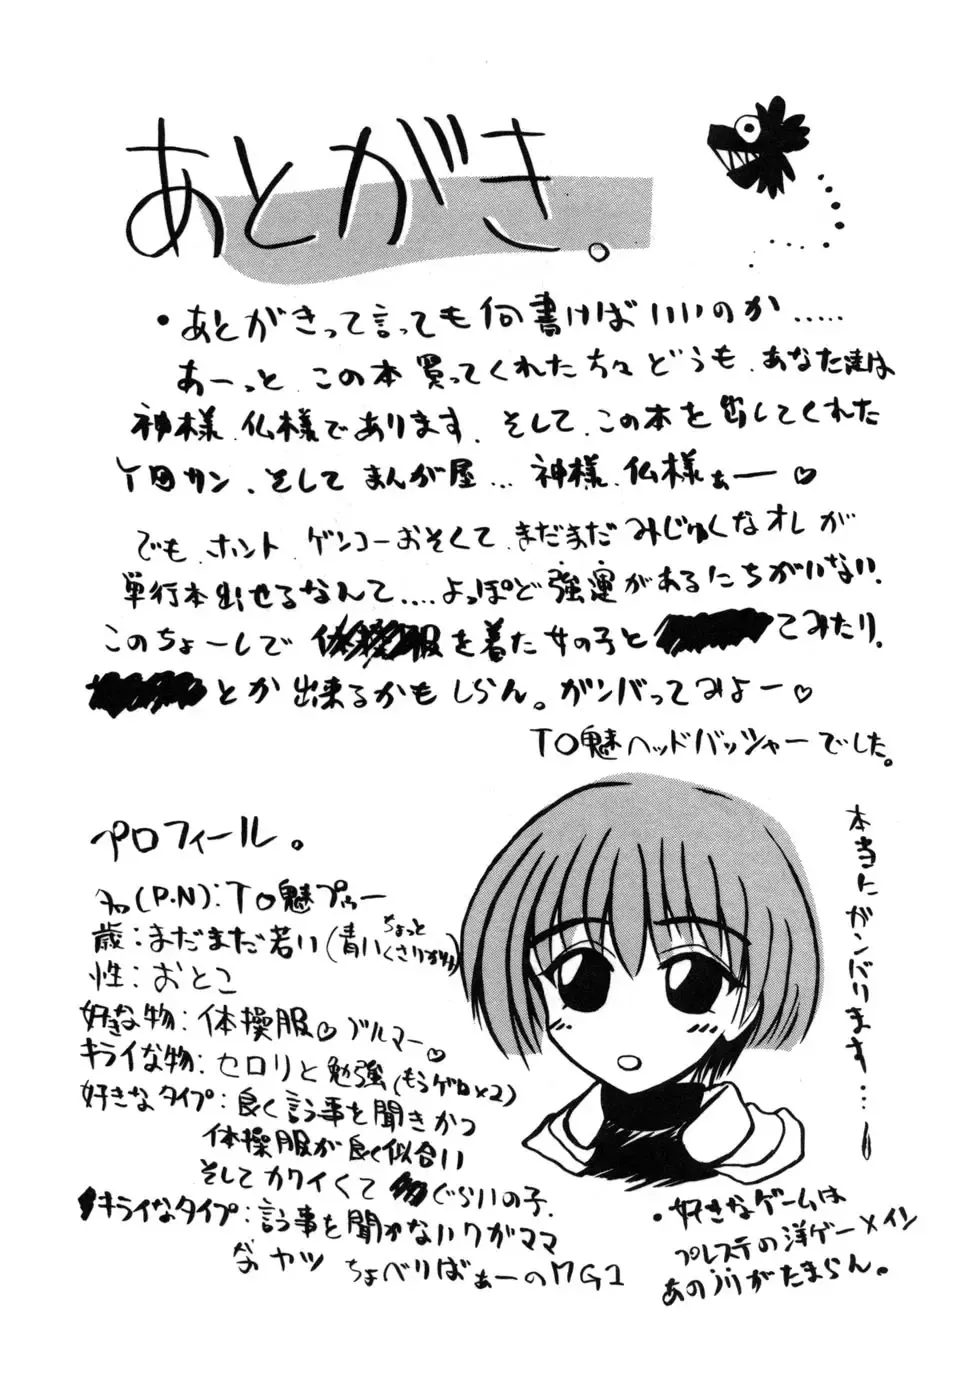 あとがき。
・あとがきって言っても何書けばいいのか.....
あーっと、この本買ってくれた方々どうも、あなた達は
神様、仏様であります、そして、この本を出してくれた
カン、そしてまんが屋...神様、仏様ぁー♡
でも、ホント、ゲンコーおそくて、まだまだみじゅくなオレが
単行本出せるなんて....よっぽど強運があるにちがいない、
このちょーしで体操服を着た女の子と てみたり、
とか出来るかもしらん。ガンバってみよー♡
TO魅ヘッドバッシャーでした。
プロフィール。
名(P.N):TO魅プゥー
歳:まだまだ若い(青い ちょっとくさりかけ)
性:おとこ
好きな物:体操服♡ブルマー♡
キライな物:セロリと勉強(もうゲロ×2)
好きなタイプ:良く言う事を聞きかつ
体操服が良く似合い
そしてカワイくて ぐらいの子.
キライなタイプ:言う事を聞かないワガママ
なヤツ ちょべりばぁーのMG1
本当にガンバります...!
・好きなゲームは
プレステの洋ゲーメイン
あのノリがたまらん。